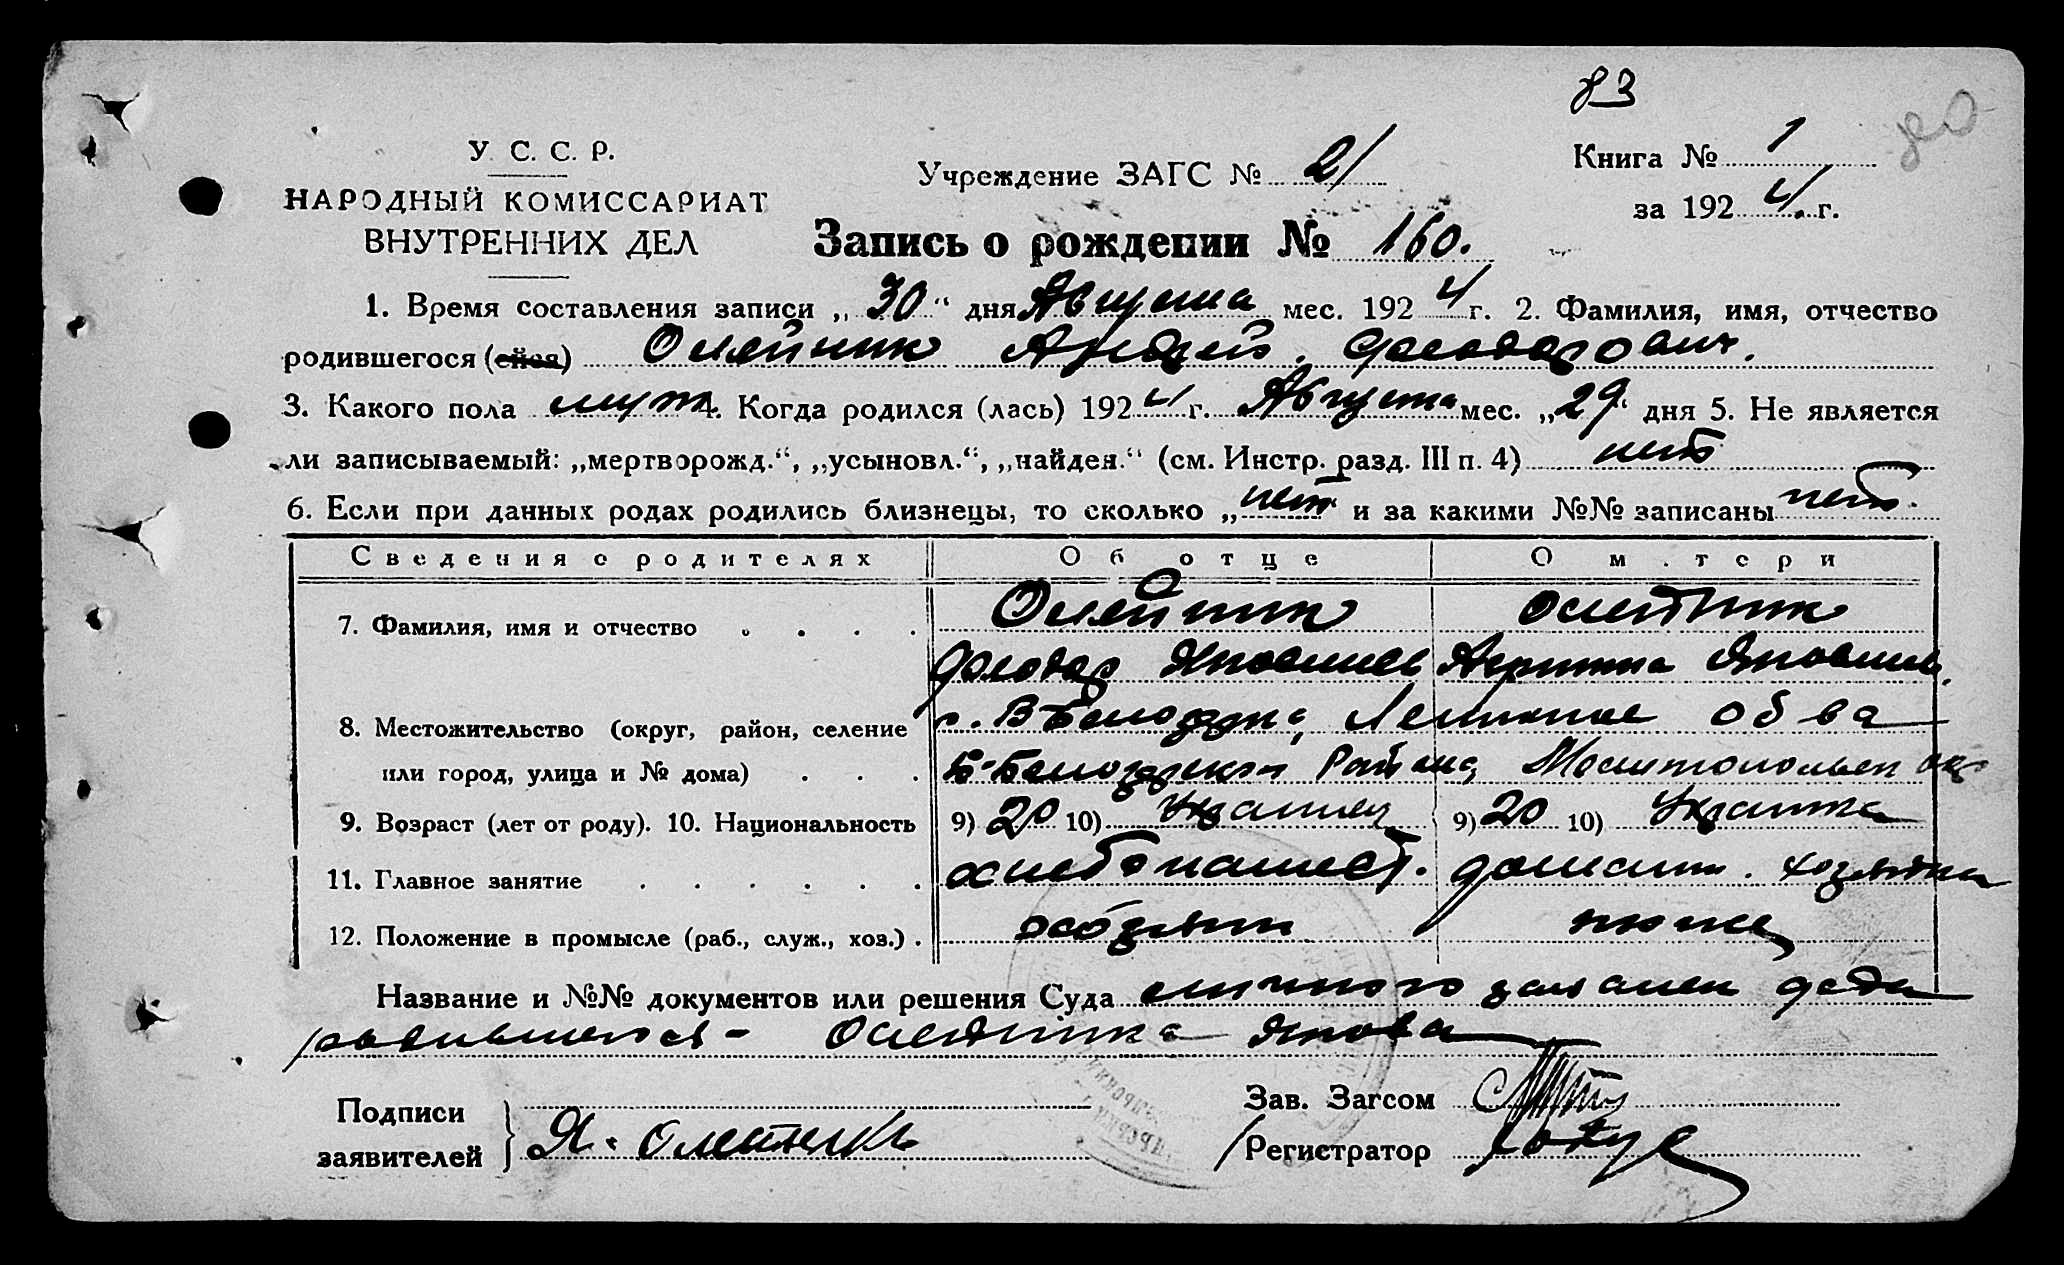 83
80
У. С. С. Р.
НАРОДНЫЙ КОМИССАРИАТ
ВНУТРЕННИХ ДЕЛ
Учреждение ЗАГС № 21
Книга № 1
за 1924 г.
Запись о рождении № 160.
1. Время составления записи „30“ дня Августа мес. 1924 г. 2. Фамилия, имя, отчество
родившегося (ейся) Олейник Андрей Феодорович.
3. Какого пола муж 4. Когда родился (лась) 1924 г. Августа мес. „29“ дня 5. Не является
ли записываемый: „мертворожд.“, „усыновл.“, „найден.“ (см. Инстр. разд. III п. 4) нет
6. Если при данных родах родились близнецы, то сколько „нет и за какими №№ записаны нет.
Сведения о родителях Об отце О матери
7. Фамилия, имя и отчество Олейник Олейник
Феодор Яковлев Яковлев.
8. Местожительство (округ, район, селение с. В Белозерка, об-ва
или город, улица и № дома) Б-Белозерского Района, Мелитопольск ок
9. Возраст (лет от роду). 10. Национальность 9) 20 10) Украинец 9) 20 10) Украинка
11. Главное занятие хлебопашест. домашн. хозяйка
12. Положение в промысле (раб., служ., хоз.) хозяин
Название и №№ документов или решения Суда личного заявлен деда
родившегося - Олейника Якова
Подписи
заявителей
Я. Олейник
Зав. Загсом
Регистратор